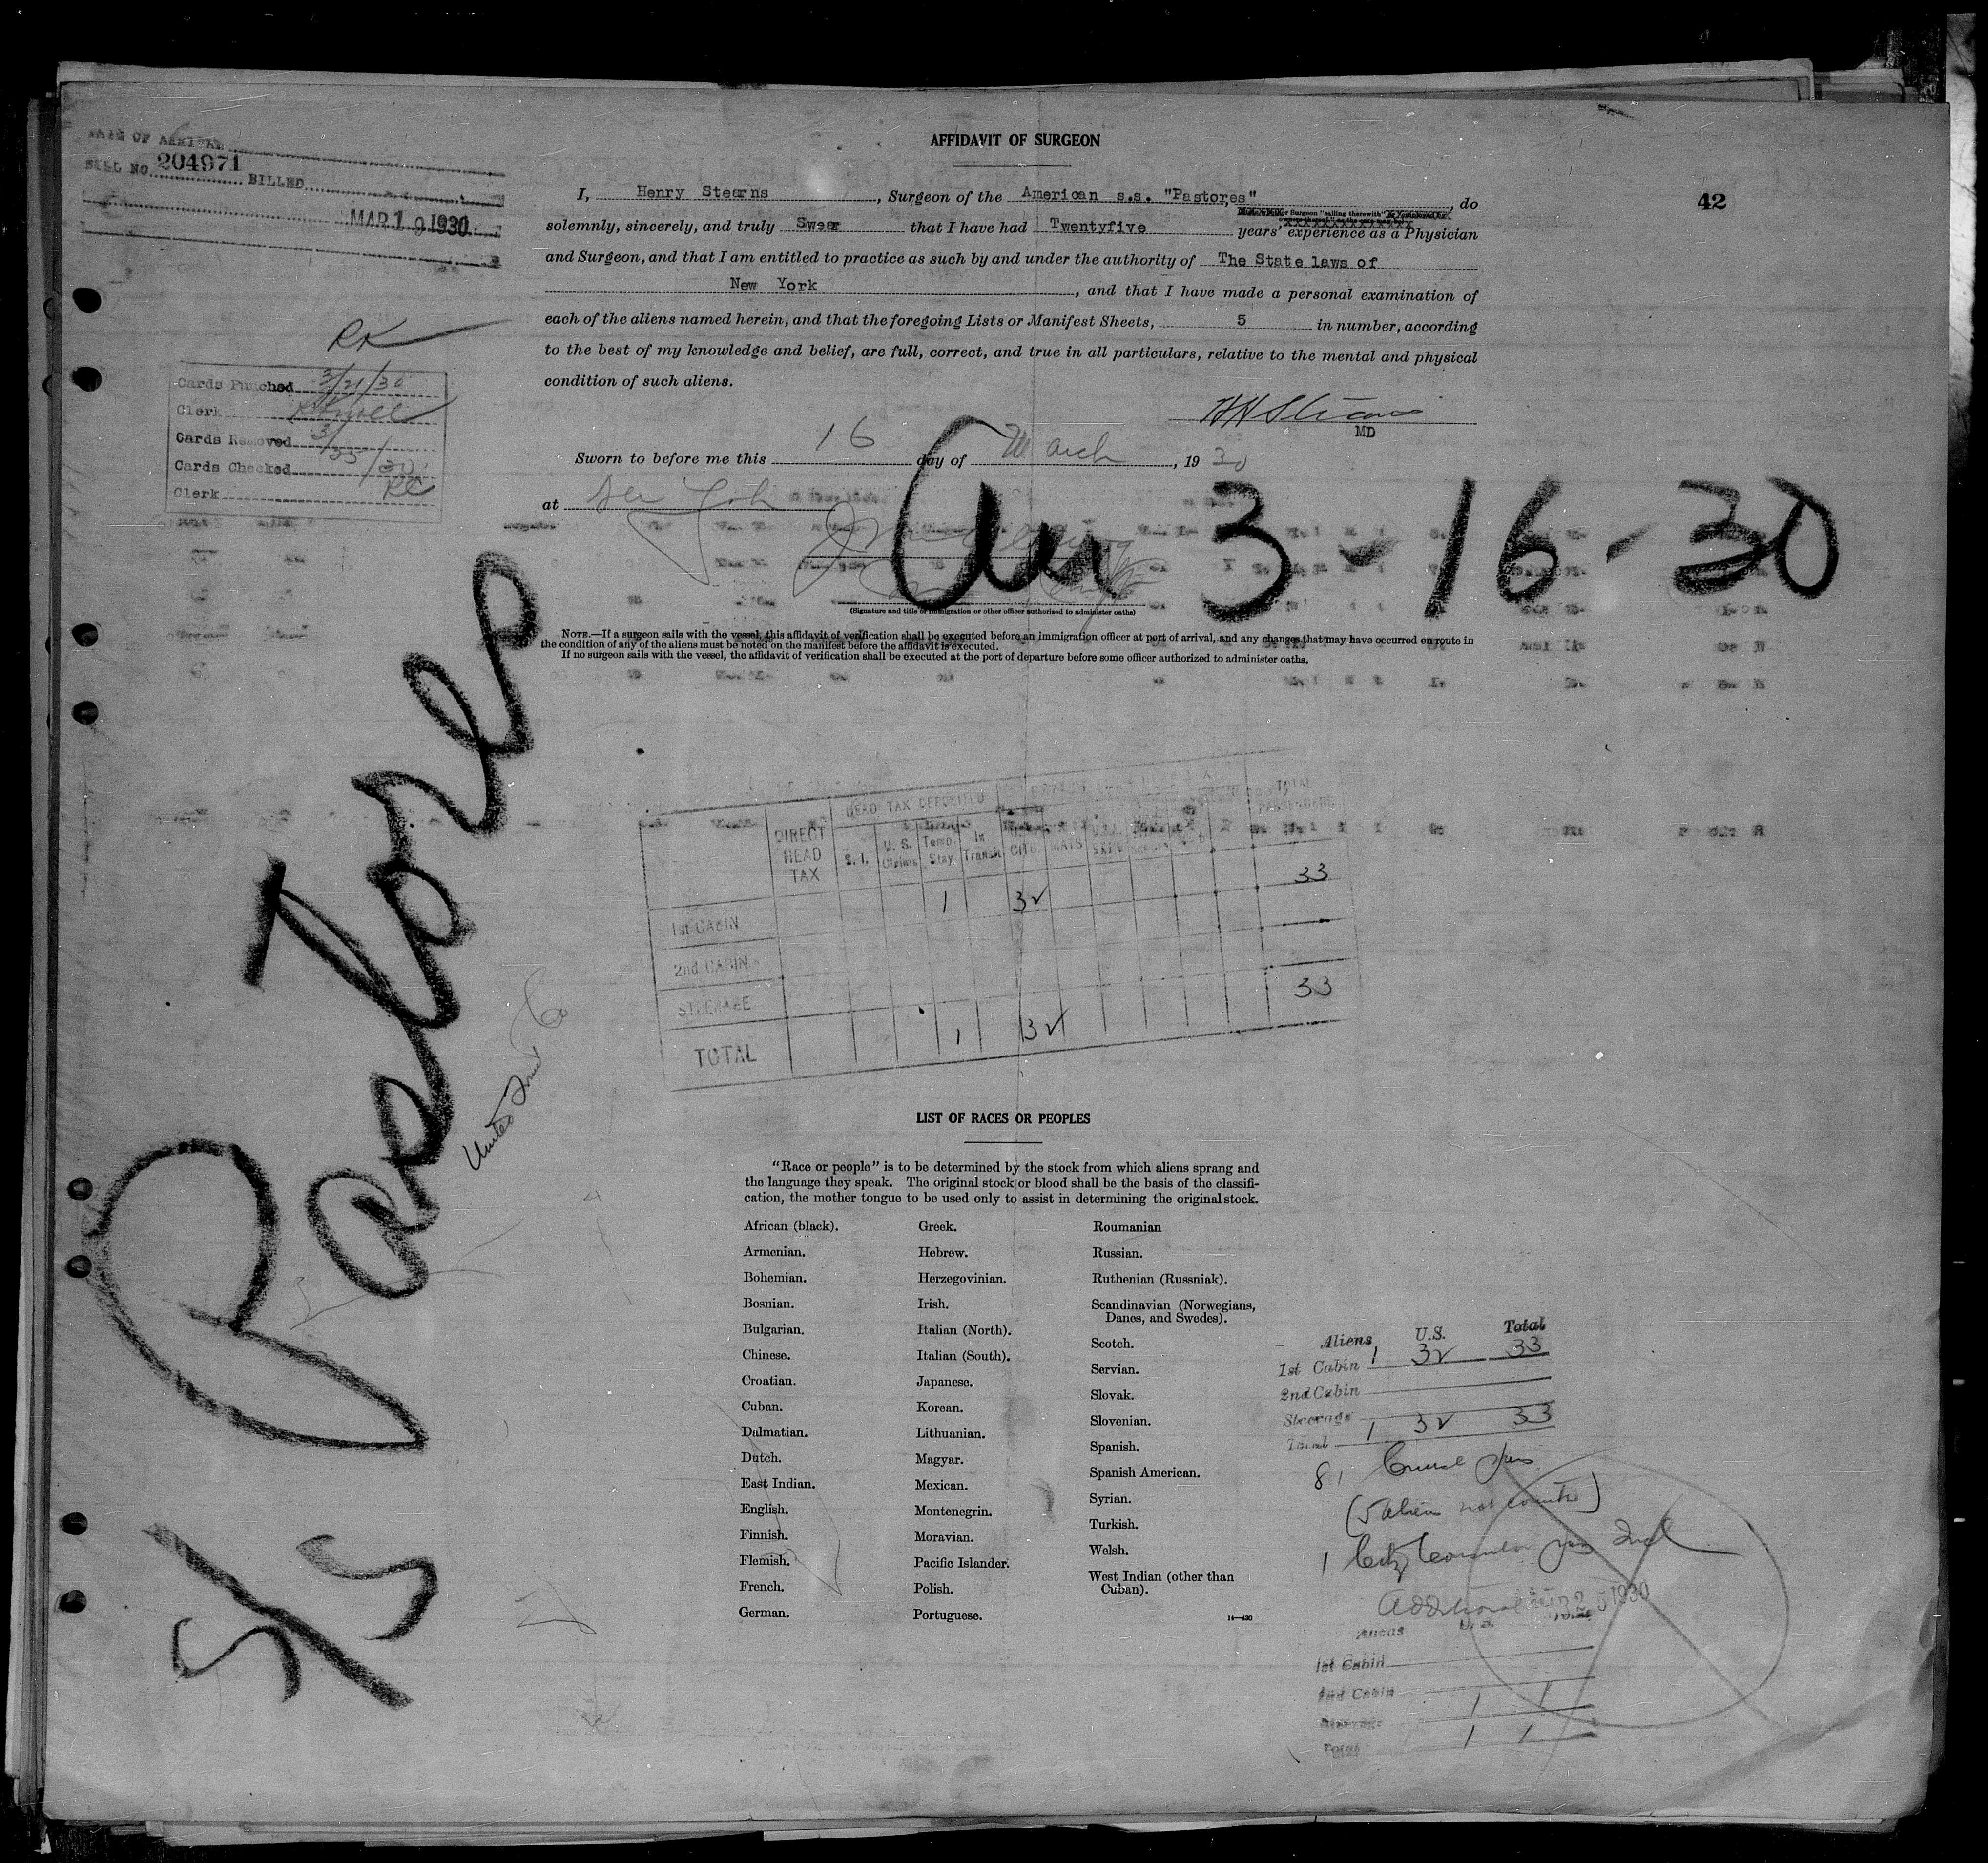 DATE OF ARRIVAL
BILL NO. 204971 BILLED
MAR 19 1930
42
AFFIDAVIT OF SURGEON
I, Henry Stearns, Surgeon of the American s.s. "Pastores", do
solemnly, sincerely, and truly Swear that I have had Twentyfive years' experience as a Physician
and Surgeon, and that I am entitled to practice as such by and under the authority of The State laws of
New York, and that I have made a personal examination of
each of the aliens named herein, and that the foregoing Lists or Manifest Sheets, 5 in number, according
to the best of my knowledge and belief, are full, correct, and true in all particulars, relative to the mental and physical
condition of such aliens.
MD
RK
Cards Punched 3/21/30
Clerk
Cards Removed 3/
Cards Checked 25/30
Clerk
Sworn to before me this 16 day of March, 1930
at New York
Arr 3-16-30
(Signature and title of immigration or other officer authorised to administer oaths)
NOTE.—If a surgeon sails with the vessel, this affidavit of verification shall be executed before an immigration officer at port of arrival, and any changes that may have occurred en route in
the condition of any of the aliens must be noted on the manifest before the affidavit is executed.
If no surgeon sails with the vessel, the affidavit of verification shall be executed at the port of departure before some officer authorized to administer oaths.
S/S Pastores
United Fruit Co
DIRECT HEAD TAX
HEAD TAX DEPOSITED
S. I. U. S. Claims Temp. Stay In Transit CITS.
TOTAL PASSENGERS
1 32 33
1st CABIN
2nd CABIN
STEERAGE
33
TOTAL 1 32
LIST OF RACES OR PEOPLES
"Race or people" is to be determined by the stock from which aliens sprang and
the language they speak. The original stock or blood shall be the basis of the classifi-
cation, the mother tongue to be used only to assist in determining the original stock.
African (black).
Armenian.
Bohemian.
Bosnian.
Bulgarian.
Chinese.
Croatian.
Cuban.
Dalmatian.
Dutch.
East Indian.
English.
Finnish.
Flemish.
French.
German.
Greek.
Hebrew.
Herzegovinian.
Irish.
Italian (North).
Italian (South).
Japanese.
Korean.
Lithuanian.
Magyar.
Mexican.
Montenegrin.
Moravian.
Pacific Islander.
Polish.
Portuguese.
Roumanian
Russian.
Ruthenian (Russniak).
Scandinavian (Norwegians,
Danes, and Swedes).
Scotch.
Servian.
Slovak.
Slovenian.
Spanish.
Spanish American.
Syrian.
Turkish.
Welsh.
West Indian (other than
Cuban).
14—430
Aliens U.S. Total
1st Cabin 1 32 33
2nd Cabin
Steerage
Total 1 32 33
81 Cruise
(5 alien not
1
Additional 1930
Aliens U. S. Total
1st Cabin
2nd Cabin 1 1
Steerage
Total 1 1